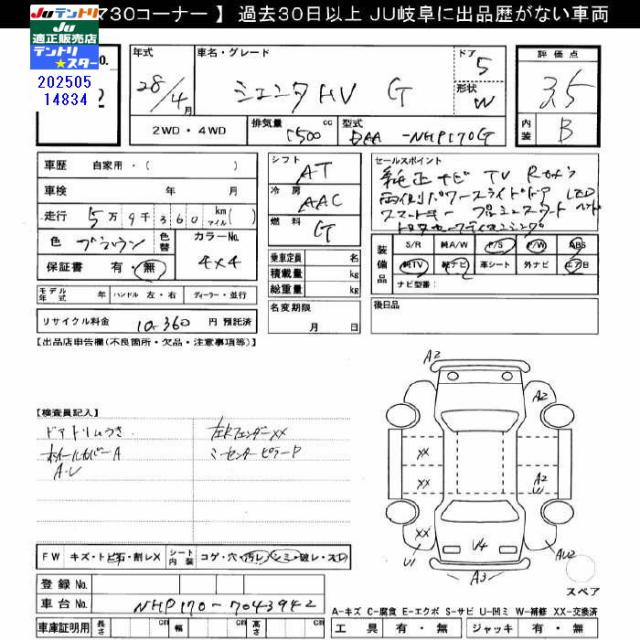 マ30コーナー 】 過去30日以上 JU岐阜に出品歴がない車両
JUテントリ
JU
適正販売店
テントリ
★スター
202505
14834
NO.
2
年式
28/4月
車名・グレード
シエンタHV G
ドア
5
形状
W
評価点
3.5
内装
B
2WD・4WD
排気量
1500
cc
型式
DAA-NHP170G
車歴
自家用・(
)
車検
年
月
走行
5万9千360
km
マイル
( )
色
ブラウン
色替
カラーNo.
4X4
保証書
有・無
モデル年式
年
ハンドル
左・右
ディーラー・並行
リサイクル料金
10,360
円 預託済
シフト
AT
冷房
AAC
燃料
G
乗車定員
名
積載量
kg
総重量
kg
名変期限
月
日
セールスポイント
純正ナビ TV Rカメラ
両側パワースライドドア LED
装備品
S/R
純A/W
P/S
P/W
ABS
純TV
純ナビ
革シート
外ナビ
エアB
ナビ型番：
後日品
【出品店申告欄(不良箇所・欠品・注意事項等)】
【検査員記入】
ドアトリムうき
ホイールカバーA
A・U
左Rフェンダーxx
ミーセンターピラーP
A2
A2
XX
XX
A2
U1
XX
U1
U4
AU2
A3
スペア
FW
キズ・トビ石・割レX
シート内装
コゲ・穴・汚レ・シミ・破レ・スD
登録 No.
車台 No.
NHP170-7043942
車庫証明用
長さ
cm
幅
cm
高さ
cm
A-キズ C-腐食 E-エクボ S-サビ U-凹ミ W-補修 XX-交換済
工具
有・無
ジャッキ
有・無